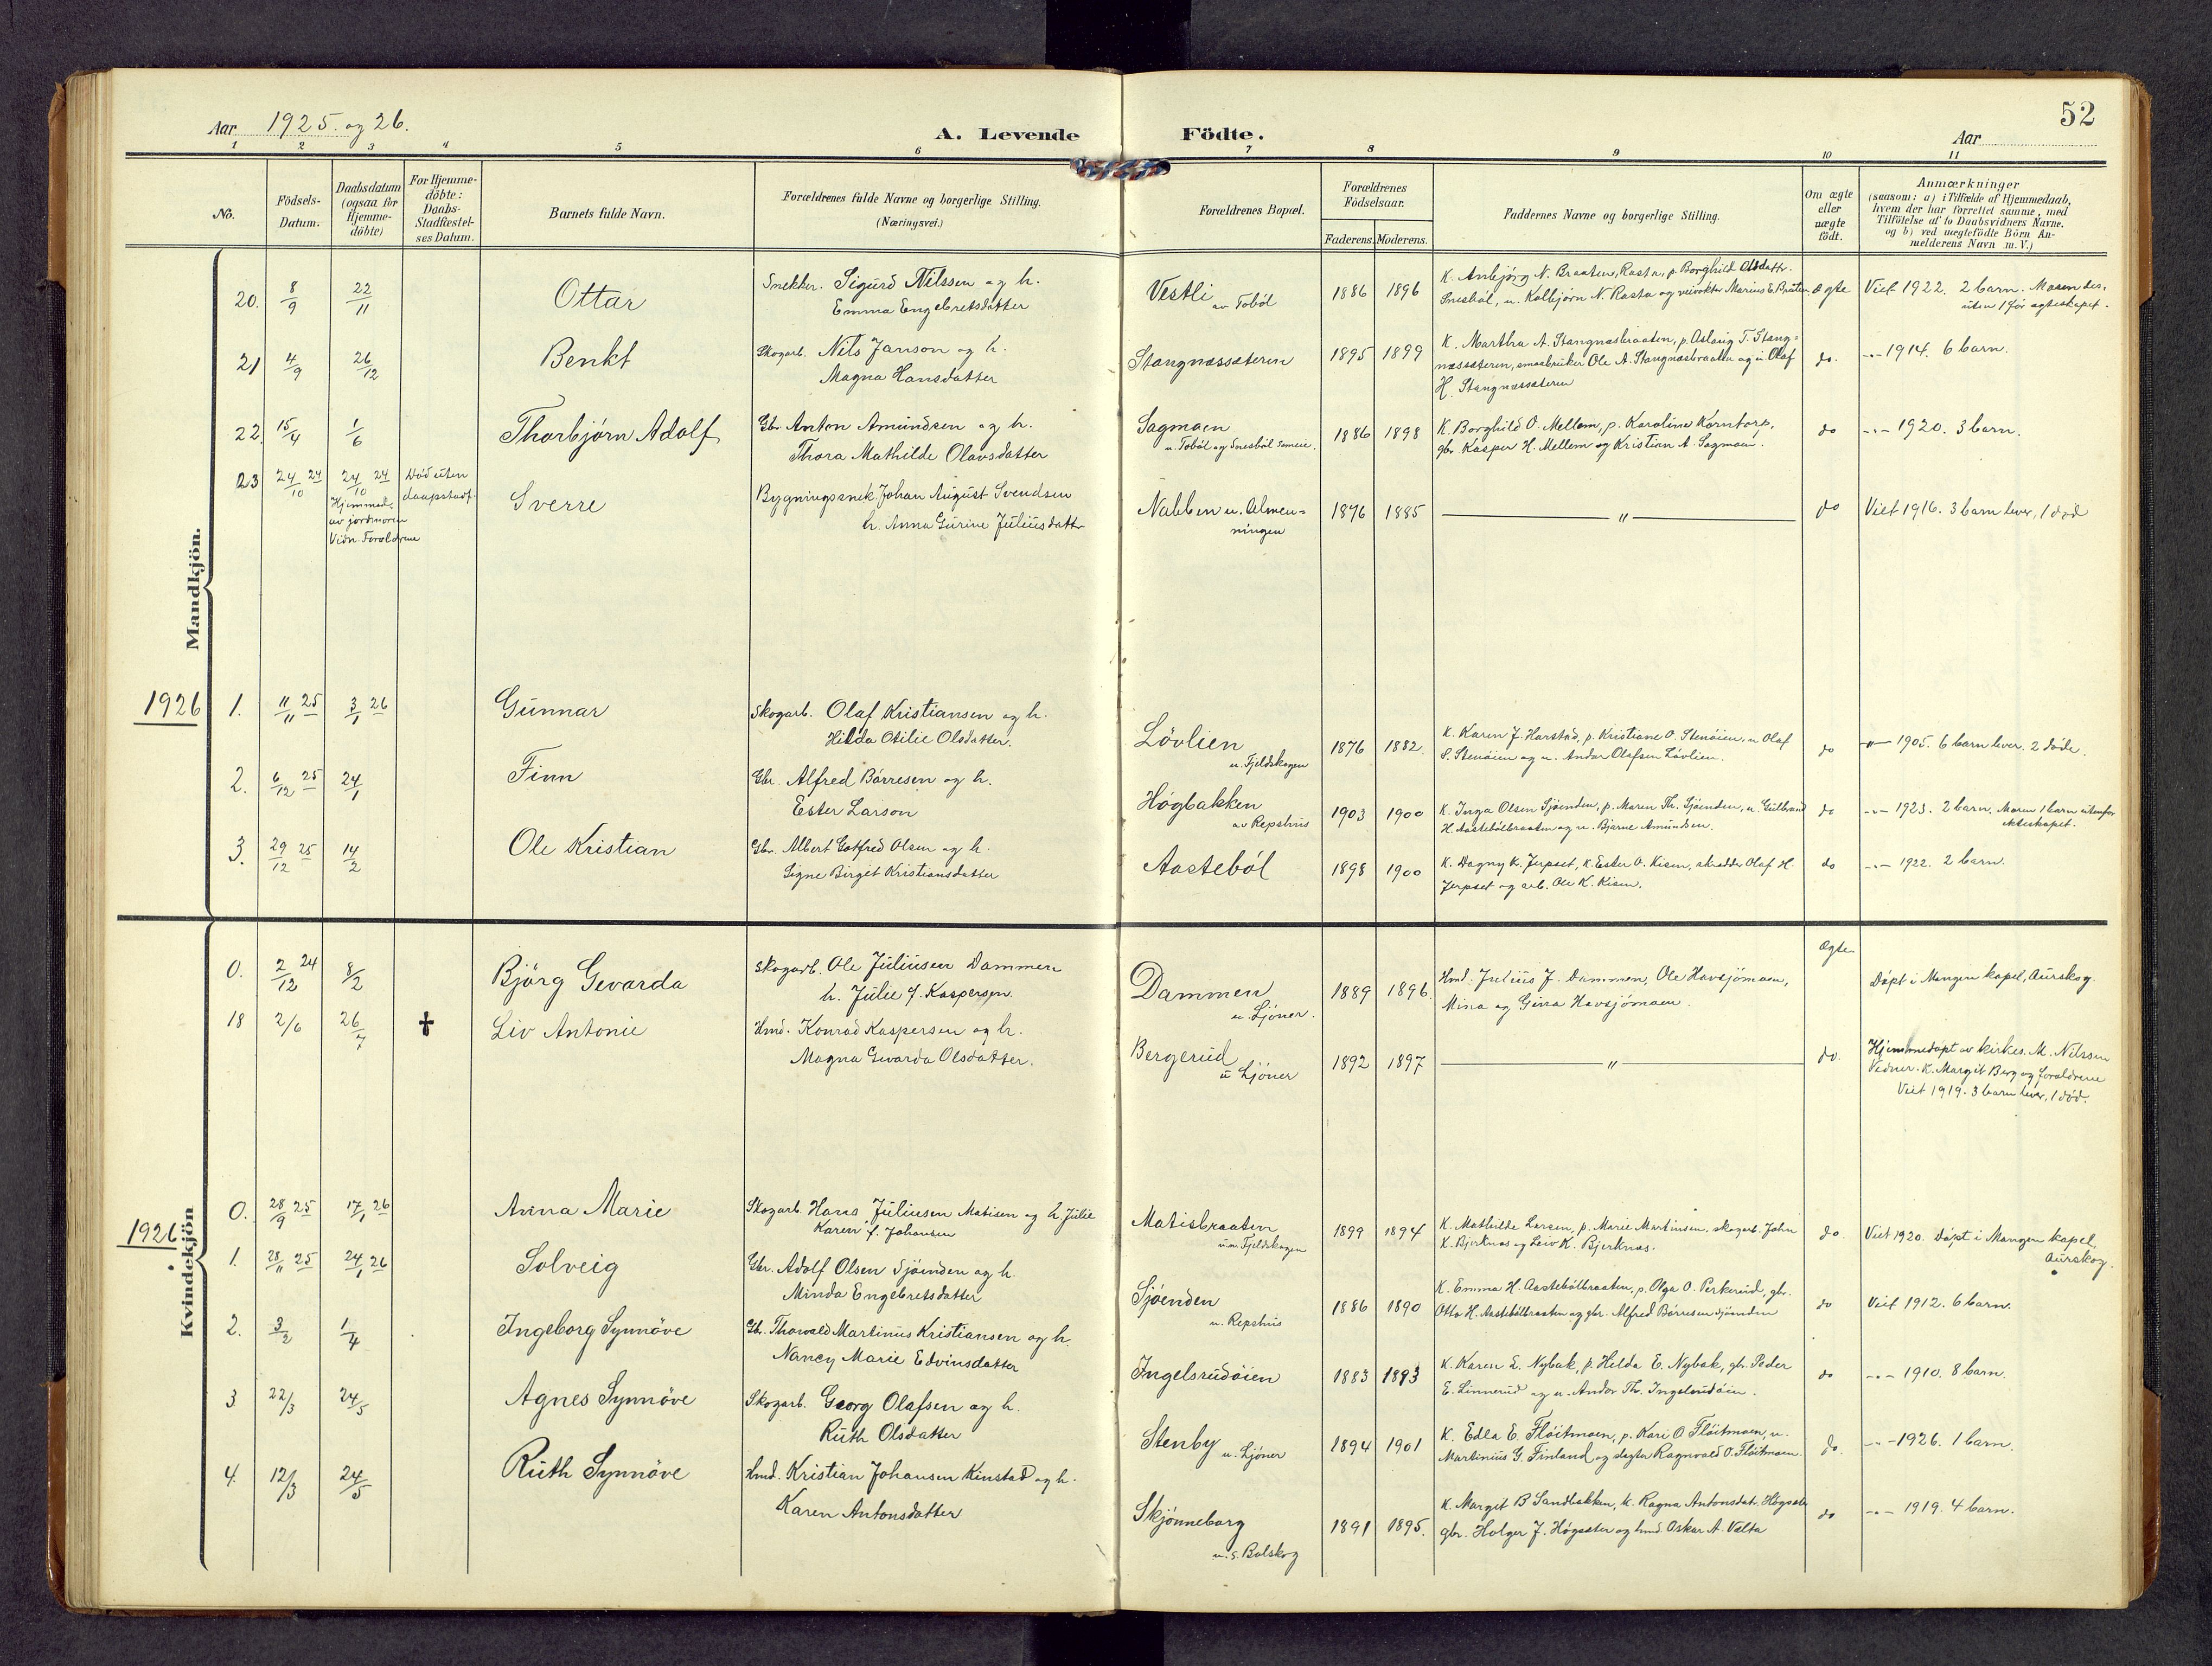 52
Aar 1925. og 26.
A. Levende Födte.
Aar
1 2 3 4 5 6 7 8 9 10 11
No.
Födsels-Datum.
Daabsdatum (ogsaa for Hjemme-döbte)
For Hjemme-döbte: Daabs-Stadfæstel-ses Datum.
Barnets fulde Navn.
Forældrenes fulde Navne og borgerlige Stilling. (Næringsvei.)
Forældrenes Bopæl.
Forældrenes Födselsaar.
Faderens. Moderens.
Faddernes Navne og borgerlige Stilling.
Om ægte eller uægte födt.
Anmærkninger
(saasom: a) i Tilfælde af Hjemmedaab,
hvem der har forrettet samme, med
Tilföielse af to Daabsvidners Navne.
og b) ved uægtefödte Börn An-
melderens Navn m. V.)
Mandkjön.
20. 8/9 22/11 Ottar
Snekker. Sigurd Nilssen og h.
Emma Engebretsdatter
Vestli
av Toböl
1886 1896
K. Anbjørg N. Braaten, Rasta, p. Borghild Olsdattr.
Snesböl, u. Kolbjörn N. Rasta og veivokter Marius E. Bråten.
Ægte
Viet 1922. 2 barn. Moren des-
uten 1 før ægteskapet.
21 4/9 26/12 Benkt
Skogarb. Nils Janson og h.
Magna Hansdatter
Stangnæssæteren
1895 1899
K. Martha A. Stangnæsbraaten, p. Aslaug T. Stang=
næssæteren, smaabruker Ole A. Stangnæsbraaten og u. Olaf
H. Stangnæssæteren
do.
-"- 1914. 6 barn.
22. 15/4 1/6 Thorbjørn Adolf
Gbr. Anton Amundsen og h.
Thora Mathilde Olavsdatter
Sagmoen
u. Toböl og Snesböl sameie.
1886 1898
K. Borghild O. Mellem, p. Karoline Korntorp,
gbr Kasper H. Mellem og Kristian A. Sagmoen.
do
-"- 1920. 3 barn.
23 24/10 24 24/10 24
Hjemmed.
av jordmoren
Vidn. Foreldrene
Död uten
daapstadf.
Sverre
Bygningssnek. Johan August Svendsen
h. Anna Gurine Juliusdatter
Nabben u. Almen=
ningen
1876 1885
"
do
Viet 1916. 3 barn lever, 1 död
1926
1. 11/11 25 3/1 26 Gunnar
Skogarb. Olaf Kristiansen og h.
Hilda Otilie Olsdatter.
Lövlien
u. Fjeldskogen
1876 1882.
K. Karen J. Harstad, p. Kristiane O. Stenöien, u. Olaf
S. Stenöien og u. Andor Olafsen Lövlien.
do
-"- 1905. 6 barn lever. 2 döde.
2. 6/12 25 24/1 Finn
Gbr. Alfred Börresen og h.
Ester Larson
Högbakken
av Repshus
1903 1900
K. Inga Olsen Sjöenden, p. Maren Th. Sjöenden, u. Gulbrand
H. Aastebölbraaten og u. Bjarne Amundsen.
do
-"- 1923. 2 barn. Moren 1 barn utenfor
ekteskapet.
3. 29/12 25 14/2 Ole Kristian
Gbr. Albert Gotfred Olsen og h.
Signe Birgit Kristiansdatter
Aasteböl
1898 1900
K. Dagny K. Jerpset, K. Ester O. Kisen, skrædder Olaf H.
Jerpset og arb. Ole K. Kisen.
do
-"- 1922. 2 barn.
Kvindekjön
0. 2/12 24 8/2 Björg Gevarda
Skogarb. Ole Juliusen Dammen
h. Julie f. Kaspersen.
Dammen
u. Ljöner.
1889 1896.
Hmd. Julius J. Dammen, Ole Havsjömoen,
Mina og Gina Havsjömoen.
Ægte
Döpt i Mangen kapel, Aurskog.
18 2/6 26/7 ✝ Liv Antonie
Hmd. Konrad Kaspersen og h.
Magna Gevarda Olsdatter.
Bergerud
u Ljöner
1892 1897
"
do.
Hjemmedøpt av kirkes. M. Nilssen
Vidner. K. Margit Berg og foreldrene
Viet 1919. 3 barn lever, 1 död.
1926
0. 28/9 25 17/1 26 Anna Marie
Skogarb. Hans Juliusen Matisen og h. Julie
Karen f. Johansen
Matisbraaten
u. Fjeldskogen
1899 1894
K. Mathilde Larsen, p. Marie Martinsen. skogarb. John
K. Bjerknæs og Leiv K. Bjerknæs.
do.
Viet 1920. Döpt i Mangen kapel,
Aurskog.
1. 28/11 25 24/1 26 Solveig
Gbr. Adolf Olsen Sjöenden og h.
Minda Engebretsdatter
Sjöenden
u. Repshus
1886 1890
K. Emma H. Aastebölbraaten, p. Olga O. Perkerud, gbr.
Otto H. Aastebölbraaten og gbr. Alfred Börresen Sjöenden
do
Viet 1912. 6 barn.
2. 3/2 1/4 Ingeborg Synnöve
Gbr. Thorvald Martinius Kristiansen og h.
Nancy Marie Edvinsdatter
Ingelsrudöien
1883 1893
K. Karen E. Nybak, p. Helda E. Nybak, gbr. Peder
E. Linnerud og u. Andor Th. Ingelsrudöien.
do
-"- 1910. 8 barn.
3 22/3 24/5 Agnes Synnöve
Skogarb. Georg Olafsen og h.
Ruth Olsdatter
Stenby
u. Ljöner
1894 1901
K. Edla E. Flöitmoen, p. Kari O. Flöitmoen, u.
Martinius G. Finland og slagter Ragnvald O. Flöitmoen
do.
-"- 1926. 1 barn.
4. 12/3 24/5 Ruth Synnöve
Hmd. Kristian Johansen Kinstad og h.
Karen Antonsdatter
Skjønneborg
u. S. Bolskog
1891 1895.
K. Margit B Sandbakken, K. Ragna Antonsdat. Högsæter
gbr. Holger J. Högsæter og hmd. Oskar A. Vælta
do
-"- 1919. 4 barn.